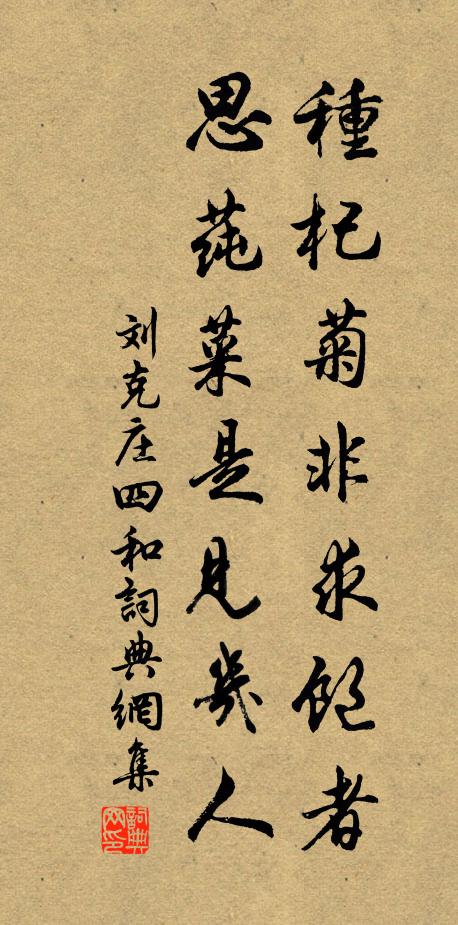 種杞菊非求飽者
思蒓菜是見幾人
刘克庄四和詞典網集
詞典網印